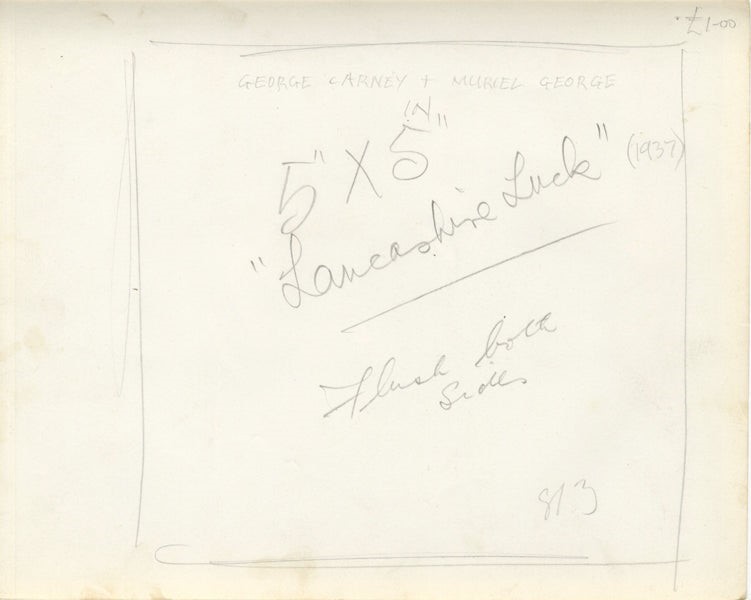 £1-00
GEORGE CARNEY + MURIEL GEORGE
IN
5" X 5"
"Lancashire Luck" (1937)
Flush both
sides
813